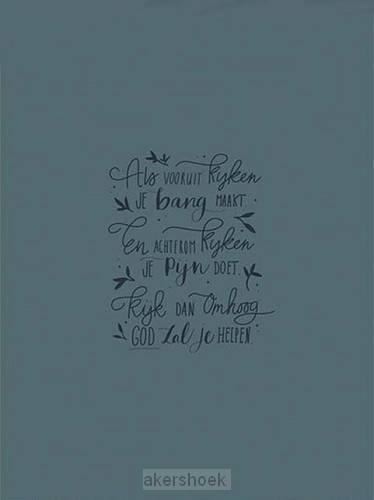 Als VOORUIT kijken
JE bang MAAKT.
En ACHTEROM kijken
JE Pijn DOET.
Kijk DAN Omhoog
GOD Zal je HELPEN.
akershoek